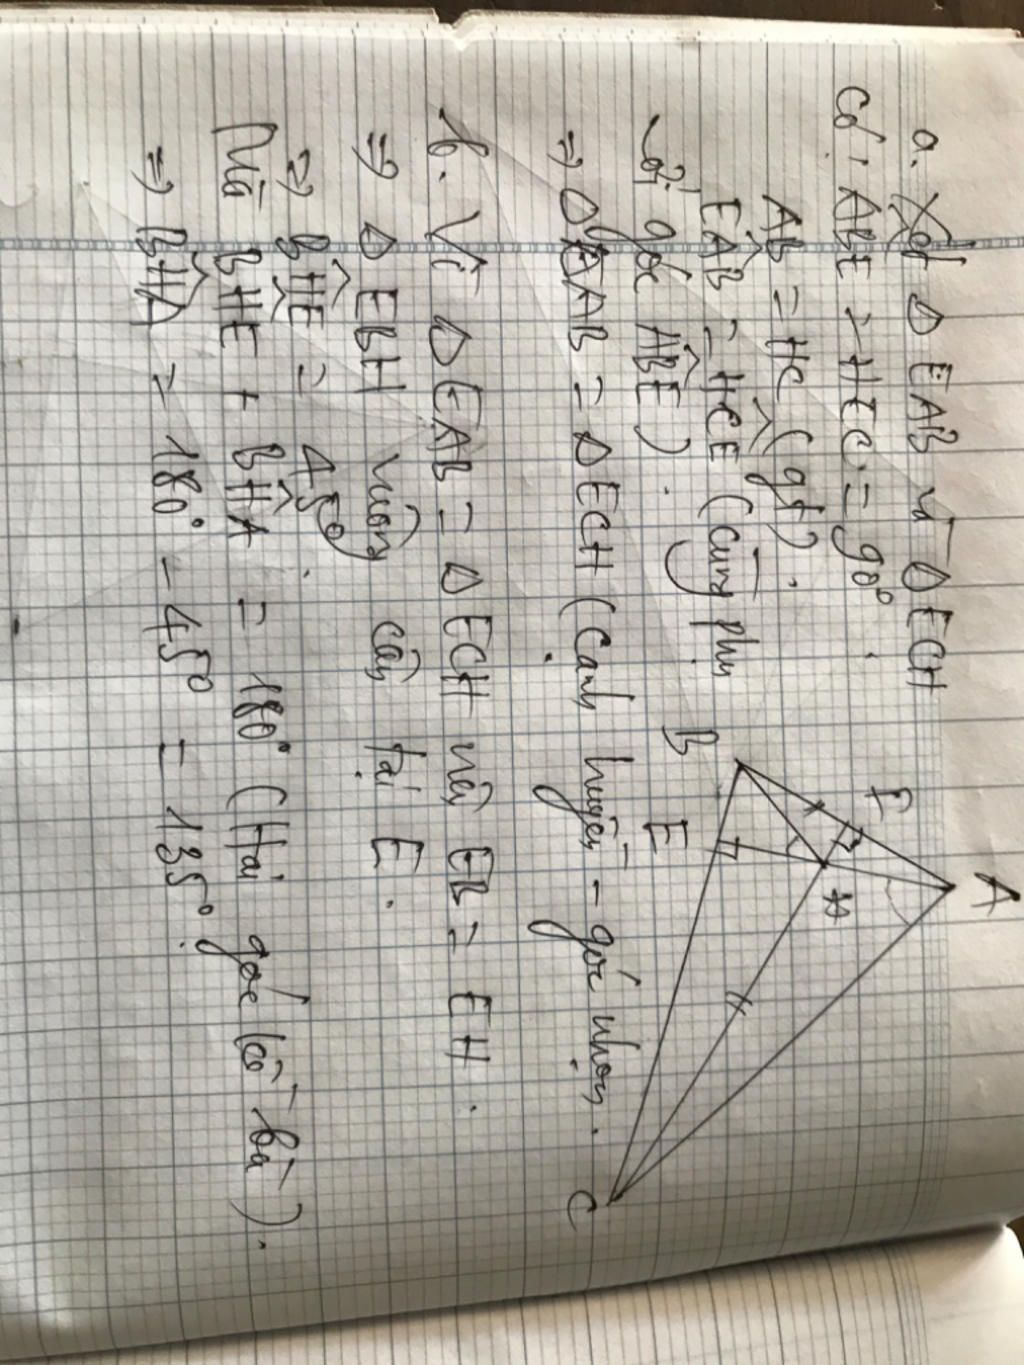 a. Xét Δ EAB và Δ ECH
Có: ABE = HEC = 90°.
AB = HC (gt).
EAB = HCE (Cùng phụ
với góc ABE).
⇒ Δ EAB = Δ ECH (Cạnh huyền - góc nhọn.
b. Vì Δ EAB = Δ ECH nên EB = EH.
⇒ Δ EBH vuông cân tại E.
⇒ BHE = 45°.
Mà BHE + BHA = 180° (Hai góc kề bù).
⇒ BHA = 180° - 45° = 135°.
A
F
B
H
E
C